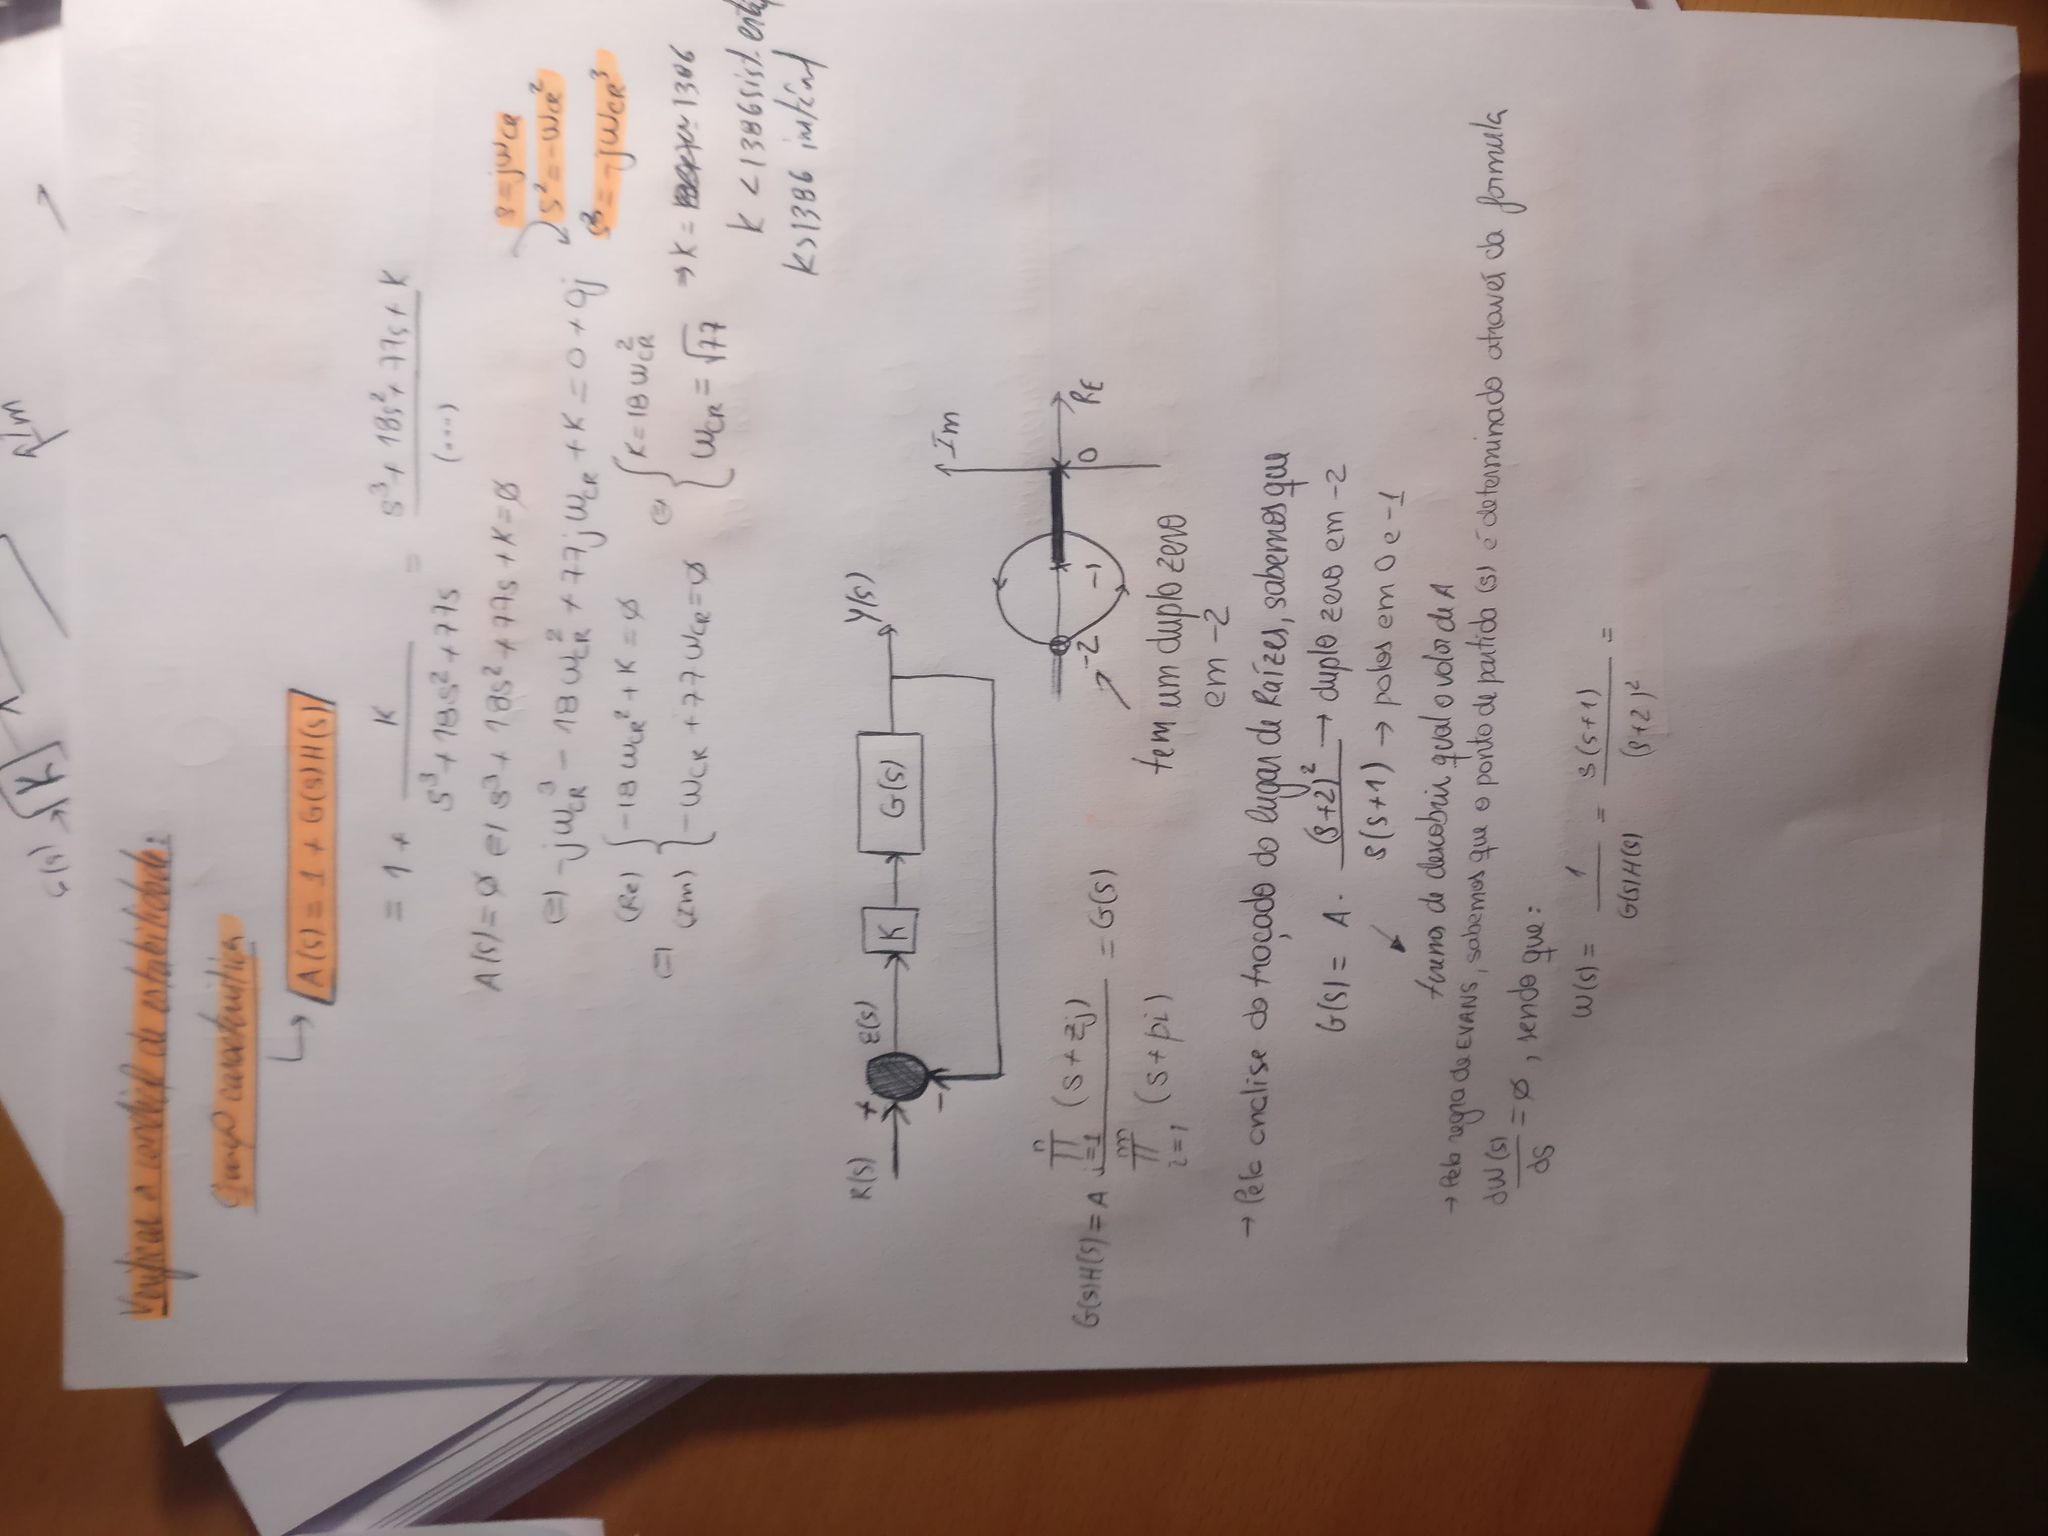 G(s) → K
Im
Verificar a condição de estabilidade:
Equação característica
↳ A(s) = 1 + G(s)H(s)
= 1 + K / (s³ + 18s² + 77s) = (s³ + 18s² + 77s + K) / (...)
A(s) = ∅ (=) s³ + 18s² + 77s + K = ∅
s = jωCR
s² = -ωCR²
s³ = -jωCR³
(=) -jωCR³ - 18ωCR² + 77jωCR + K = 0 + 0j
(=) (Re) { -18ωCR² + K = ∅
(Im) { -ωCR + 77ωCR = ∅
(=) { K = 18ωCR²
{ ωCR = √77 → K = 1386
K < 1386 sist.
K > 1386
R(s) + - E(s) K G(s) Y(s)
Im
-2 -1 0 RE
tem um duplo zero
em -2
G(s)H(s) = A ∏ⁿj=1 (s + zj) / ∏ᵐi=1 (s + pi) = G(s)
→ Pela analise do traçado do lugar de Raízes, sabemos que
G(s) = A · (s+2)² / s(s+1)
(s+2)² → duplo zero em -2
s(s+1) → polos em 0 e -1
de descobrir qual o valor de A
→ Pela regra de EVANS, sabemos que o ponto de partida (s) é determinado através da formula
dW(s)/ds = ∅, sendo que:
W(s) = 1 / G(s)H(s) = s(s+1) / (s+2)² =